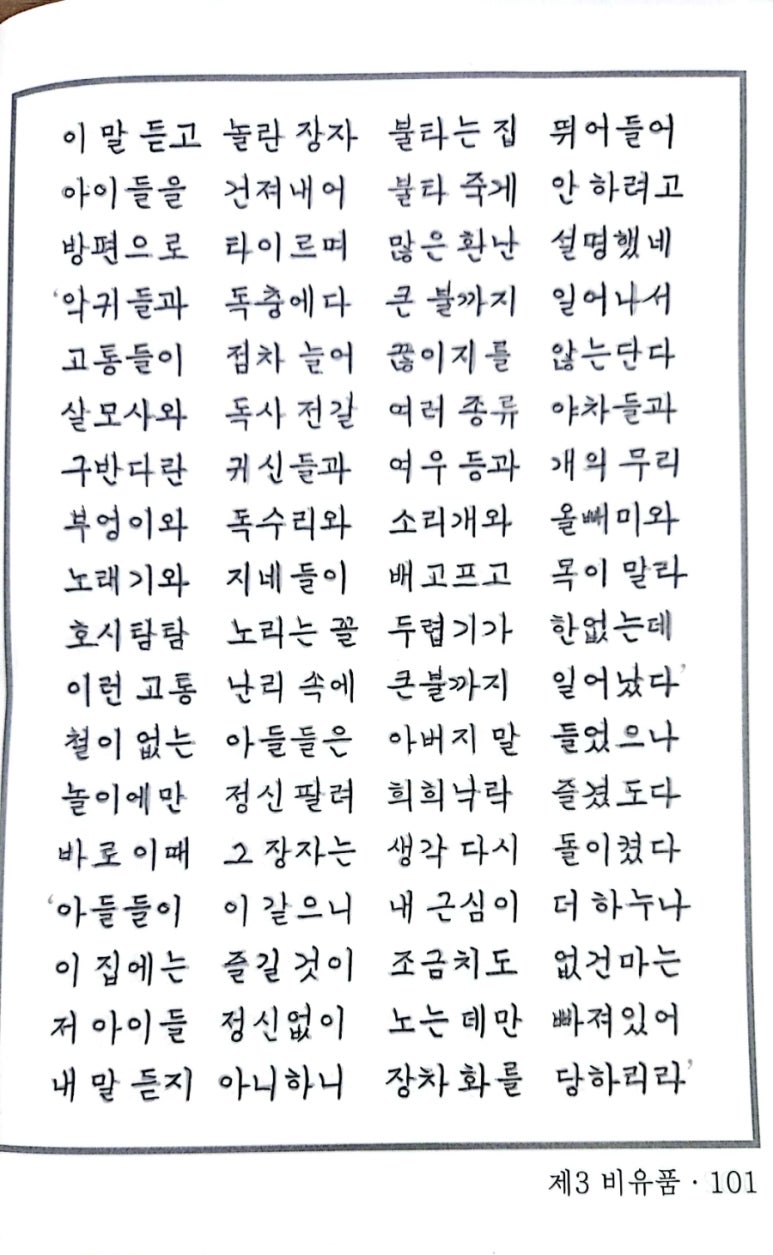 이 말 듣고 놀란 장자 불타는 집 뛰어들어
아이들을 건져내어 불타 죽게 안 하려고
방편으로 타이르며 많은 환난 설명했네
‘악귀들과 독충에다 큰 불까지 일어나서
고통들이 점차 늘어 끊이지를 않는단다
살모사와 독사 전갈 여러 종류 야차들과
구반다란 귀신들과 여우 등과 개의 무리
부엉이와 독수리와 소리개와 올빼미와
노래기와 지네들이 배고프고 목이 말라
호시탐탐 노리는 꼴 두렵기가 한없는데
이런 고통 난리 속에 큰불까지 일어났다’
철이 없는 아들들은 아버지 말 들었으나
놀이에만 정신 팔려 희희낙락 즐겼도다
바로 이때 그 장자는 생각 다시 돌이켰다
‘아들들이 이 같으니 내 근심이 더 하누나
이 집에는 즐길 것이 조금치도 없건마는
저 아이들 정신없이 노는 데만 빠져있어
내 말 듣지 아니하니 장차 화를 당하리라’
제3 비유품 · 101